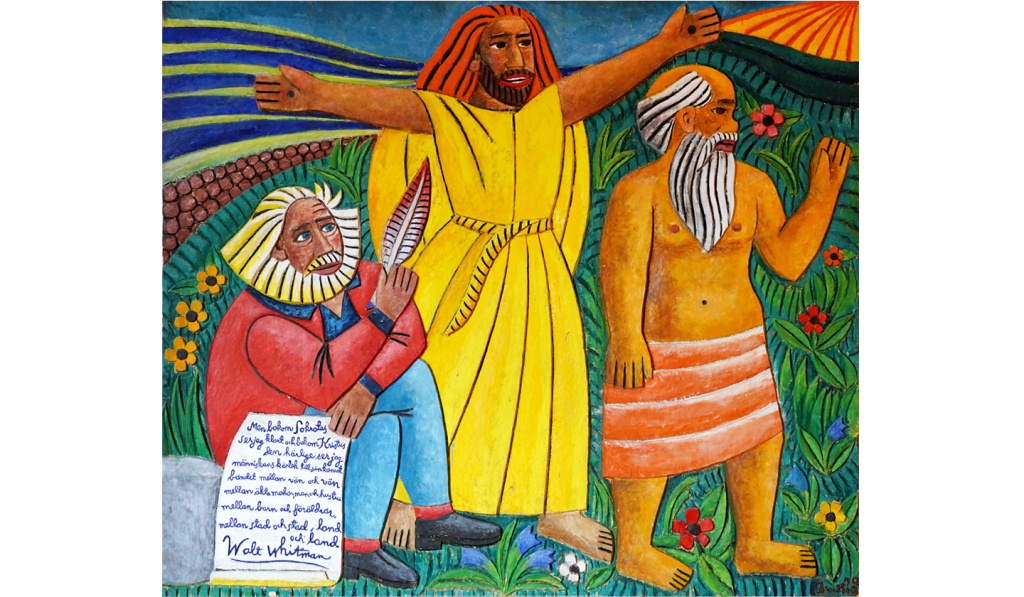 Men bakom Sokrates
ser jag klart och bakom Kristus
den härlige ser jag
människans kärlek till sin kamrat
bandet mellan vän och vän
mellan äkta makar, man och hustru
mellan barn och föräldrar,
mellan stad och stad, land
och land
Walt Whitman